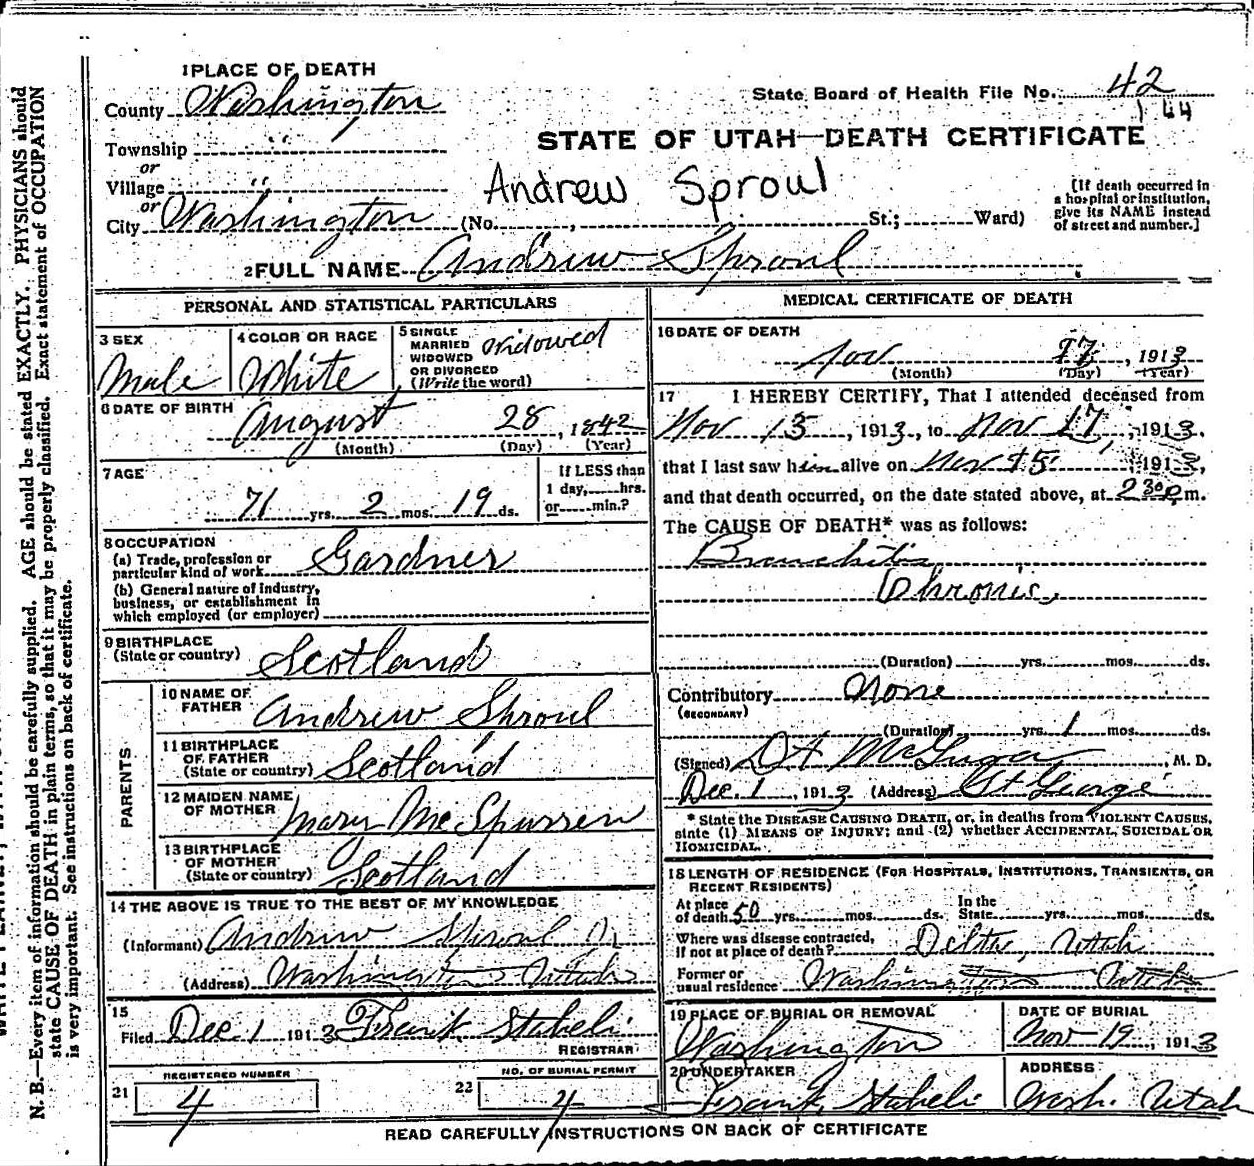 1 PLACE OF DEATH
County Washington
State Board of Health File No. 42
144
Township "
or
STATE OF UTAH—DEATH CERTIFICATE
Village "
or
Andrew Sproul
City Washington (No. , St.; Ward)
[If death occurred in
a hospital or institution,
give its NAME instead
of street and number.]
2 FULL NAME Andrew Sproul
PERSONAL AND STATISTICAL PARTICULARS
3 SEX
Male
4 COLOR OR RACE
White
5 SINGLE
MARRIED
WIDOWED
OR DIVORCED
(Write the word)
Widowed
6 DATE OF BIRTH
August 28, 1842
(Month) (Day) (Year)
7 AGE
71 yrs. 2 mos. 19 ds.
If LESS than
1 day, hrs.
or min.?
8 OCCUPATION
(a) Trade, profession or
particular kind of work Gardner
(b) General nature of industry,
business, or establishment in
which employed (or employer)
9 BIRTHPLACE
(State or country) Scotland
PARENTS
10 NAME OF
FATHER Andrew Sproul
11 BIRTHPLACE
OF FATHER
(State or country) Scotland
12 MAIDEN NAME
OF MOTHER Mary McSpurren
13 BIRTHPLACE
OF MOTHER
(State or country) Scotland
14 THE ABOVE IS TRUE TO THE BEST OF MY KNOWLEDGE
(Informant) Andrew Sproul Jr
(Address) Washington Utah
15
Filed Dec. 1 1913 Frank Staheli
REGISTRAR
21
REGISTERED NUMBER
4
22
NO. OF BURIAL PERMIT
4
MEDICAL CERTIFICATE OF DEATH
16 DATE OF DEATH
Nov 17, 1913
(Month) (Day) (Year)
17 I HEREBY CERTIFY, That I attended deceased from
Nov 13, 1913, to Nov 17, 1913,
that I last saw him alive on Nov 15, 1913,
and that death occurred, on the date stated above, at 2 30 p m.
The CAUSE OF DEATH* was as follows:
Bronchitis
Chronic,
(Duration) yrs. mos. ds.
Contributory None
(SECONDARY)
(Duration) yrs. 1 mos. ds.
(Signed) M. D.
Dec. 1, 1913 (Address) St George
* State the DISEASE CAUSING DEATH, or, in deaths from VIOLENT CAUSES,
state (1) MEANS OF INJURY; and (2) whether ACCIDENTAL, SUICIDAL OR
HOMICIDAL.
18 LENGTH OF RESIDENCE (FOR HOSPITALS, INSTITUTIONS, TRANSIENTS, OR
RECENT RESIDENTS)
At place
of death 50 yrs. mos. ds. In the
State yrs. mos. ds.
Where was disease contracted,
if not at place of death? Delta, Utah
Former or
usual residence Washington Utah
19 PLACE OF BURIAL OR REMOVAL
Washington
DATE OF BURIAL
Nov 19, 1913
20 UNDERTAKER
Frank Staheli
ADDRESS
Wash. Utah
READ CAREFULLY INSTRUCTIONS ON BACK OF CERTIFICATE
N. B.—Every item of information should be carefully supplied. AGE should be stated EXACTLY. PHYSICIANS should
state CAUSE OF DEATH in plain terms, so that it may be properly classified. Exact statement of OCCUPATION
is very important. See instructions on back of certificate.